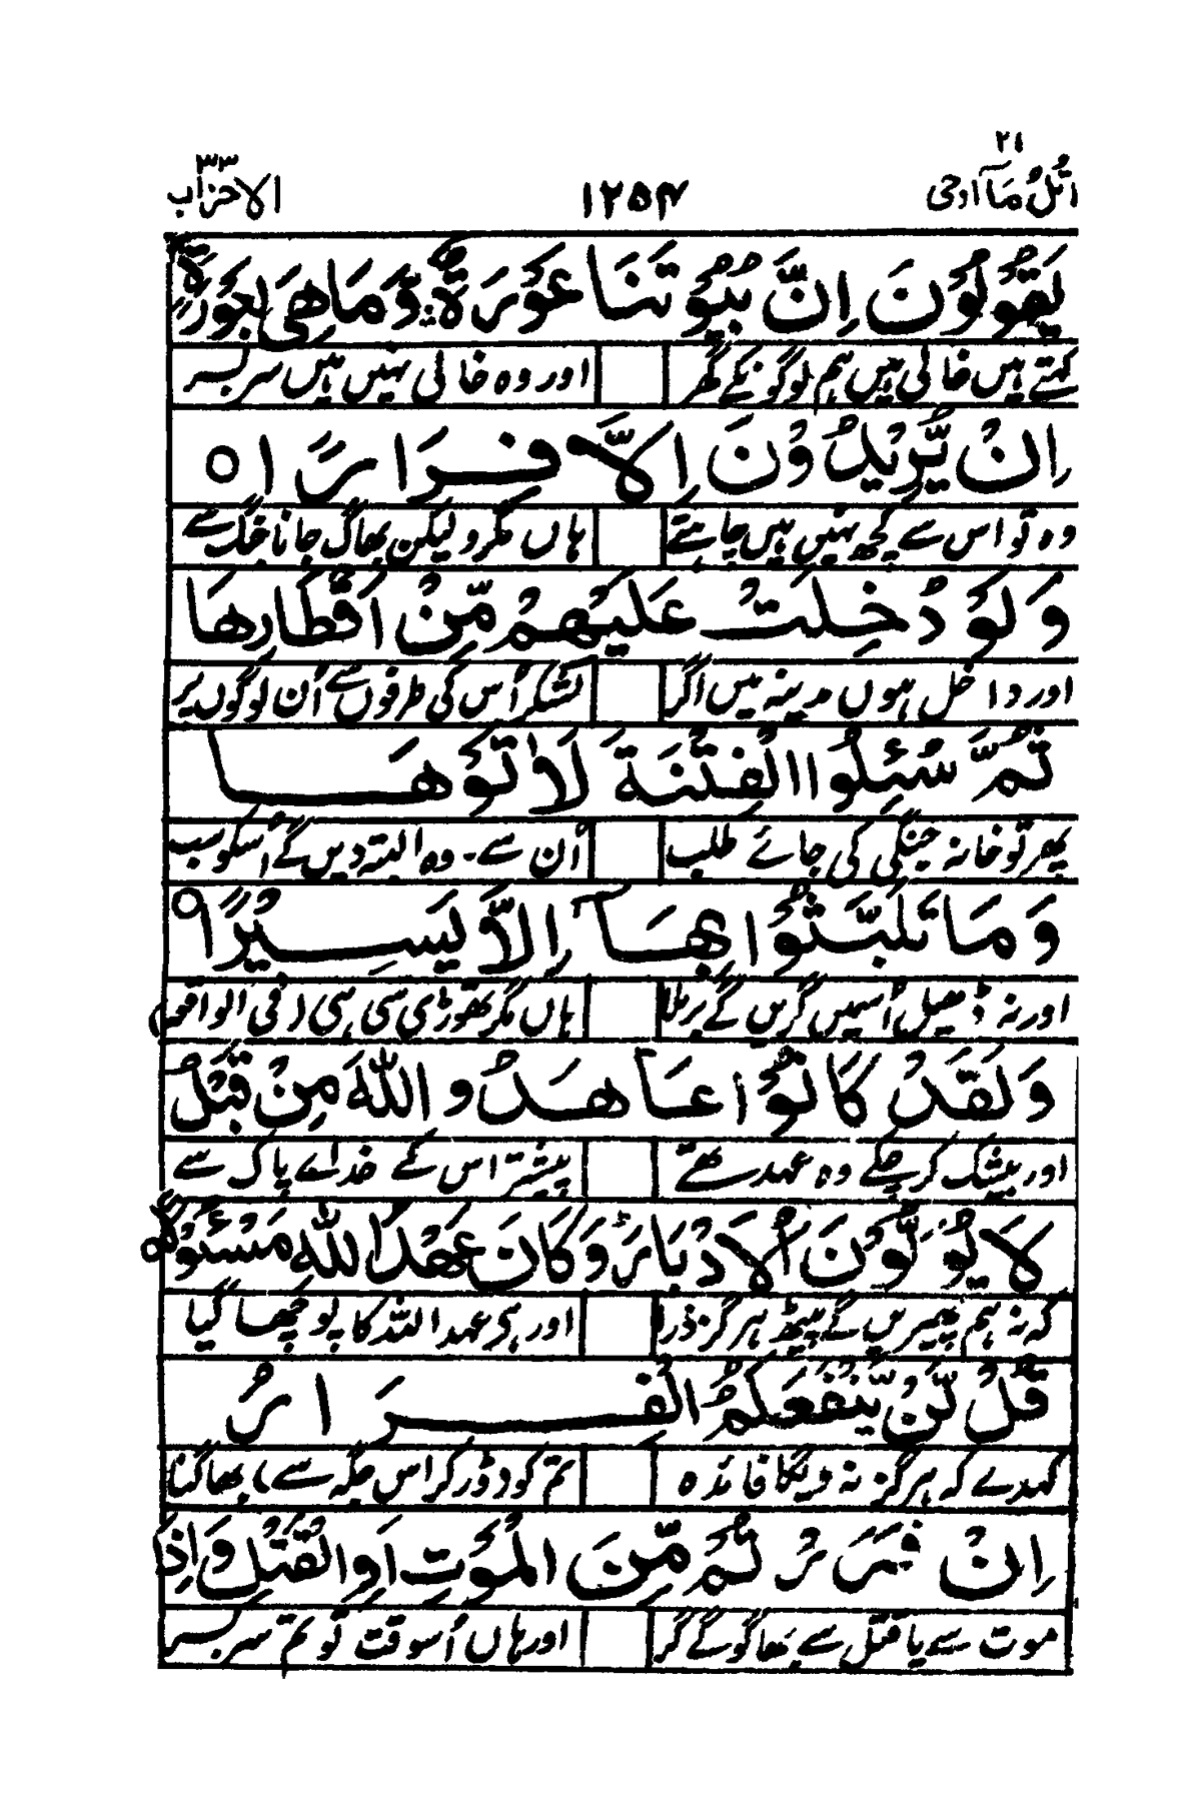 ۲۱
اتل مآ اوحی
۱۲۵۴
الاحزاب ۳۳
يَقُوۡلُوۡنَ اِنَّ بُيُوۡتَنَا عَوۡرَةٌ ۛؕ وَّمَا هِىَ بِعَوۡرَةٍ ۛۚ
کہتے ہیں خالی ہیں ہم لوگونکے گھر اور وہ خالی نہیں ہیں سر بسر
اِنۡ يُّرِيۡدُوۡنَ اِلَّا فِرَارًا ۝
وہ تو اس سے کچھ نہیں ہیں چاہتے ہاں مگر ولیکن بھاگ جانا جنگ سے
وَلَوۡ دُخِلَتۡ عَلَيۡهِمۡ مِّنۡ اَقۡطَارِهَا
اور داخل ہوں مدینہ میں اگر لشکر اُس کی طرفوں سے اُن لوگوں پر
ثُمَّ سُئِلُوا الۡفِتۡنَةَ لَاٰتَوۡهَا
پھر تو خانہ جنگی کی جائے طلب اُن سے۔ وہ البتہ دیں گے اُسکو سب
وَمَا تَلَبَّثُوۡا بِهَاۤ اِلَّا يَسِيۡرًا ۝
اور نہ ڈھیل اُسمیں کریں گے برملا ہاں مگر تھوڑی سی ہی (فی الواقعہ)
وَلَقَدۡ كَانُوۡا عَاهَدُوا اللّٰهَ مِنۡ قَبۡلُ
اور بیشک کر چکے وہ عہد تھے پیشتر اس کے خدائے پاک سے
لَا يُوَلُّوۡنَ الۡاَدۡبَارَ ؕ وَكَانَ عَهۡدُ اللّٰهِ مَسۡئُوۡلًا ۝
کہ نہ ہم پھیریں گے پیٹھ ہرگز ذرا اور ہی عہد اللہ کا پوچھا گیا
قُلْ لَّنۡ يَّنۡفَعَكُمُ الۡفِرَارُ
کہدے کہ ہرگز نہ دیگا فائدہ تم کو دوڑ کر اس جگہ سے، بھاگنا
اِنۡ فَرَرۡتُمۡ مِّنَ الۡمَوۡتِ اَوِ الۡقَتۡلِ وَاِذًا
موت سے یا قتل سے بھاگوگے گر اور ہاں اُسوقت تو تم سر بسر